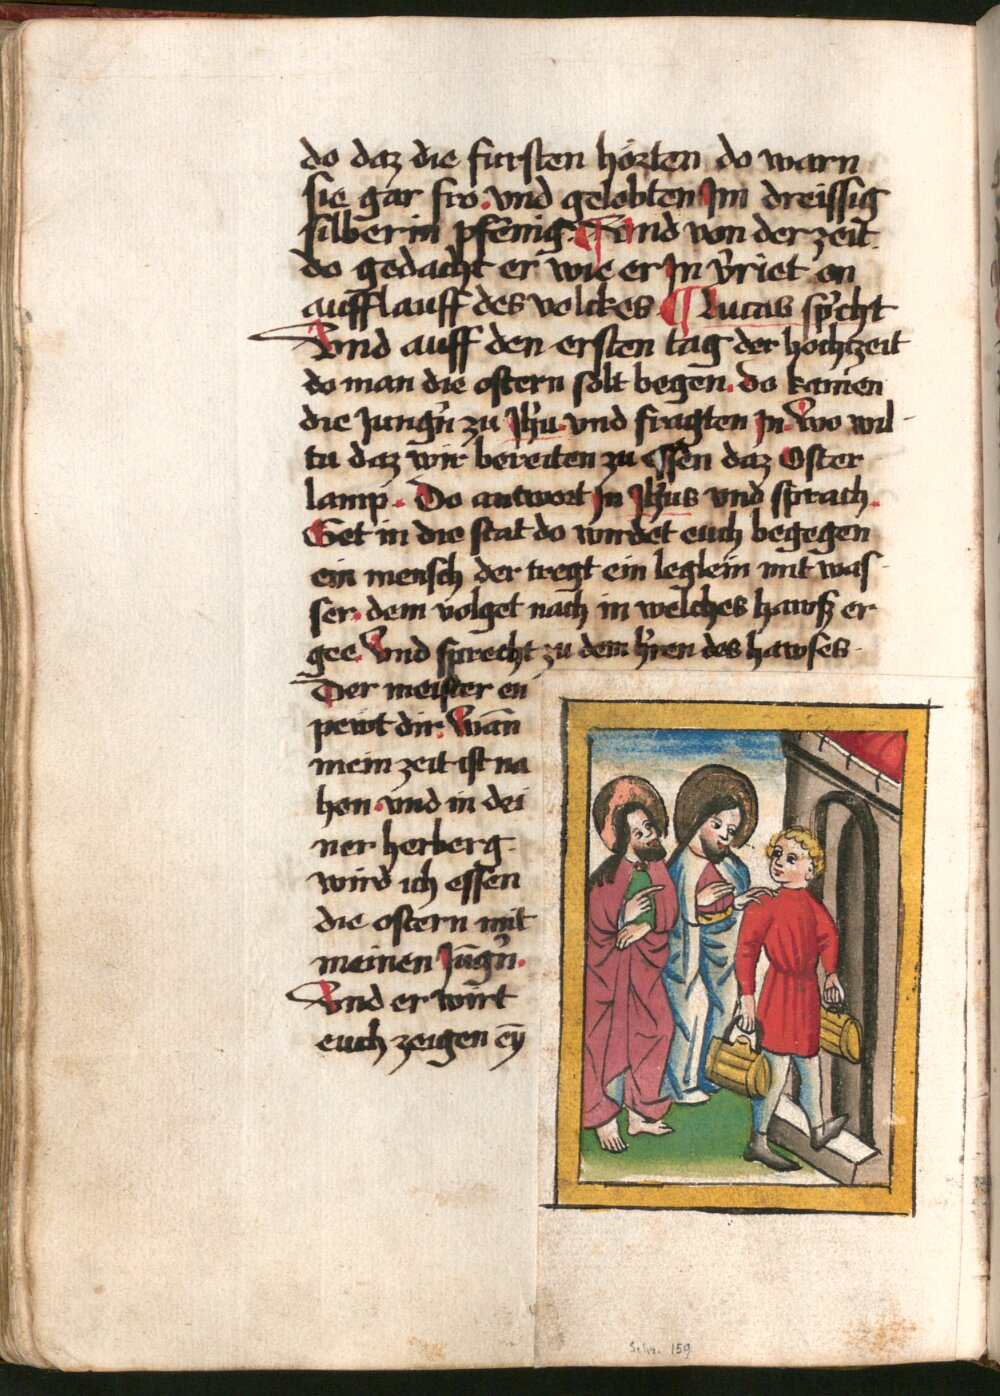 do daz die fursten horten do warn
sie gar fro. vnd gelobten Im dreissig
silberin pfenig. ¶ Vnd von der zeit
do gedacht er wie er In v̉riet en
aufflauff des volckes ¶ Lucas sp̃cht
Vnd auff den ersten tag der hochtzeit
do man die ostern solt begen. do kamen
die Jung̉n zu Jh̃u. vnd fragten In. Wo wil
tu daz wir bereiten zu essen daz Oster
lamp. Do antwort In Jh̃us vnd sprach.
Get in die stat do wirdet euch begegen
ein mensch der tregt ein leglein mit was
ser. dem volget nach in welches hawß er
gee. Vnd sprecht zu dem h̉ren des hawses
Der meister en
pewt dir. Wan̄
mein zeit ist na
hen. vnd in dei
ner herberg
wird ich essen
die ostern mit
meinen Jũg̉n.
Vnd er wirt
euch zeigen ey̅
Schr. 159